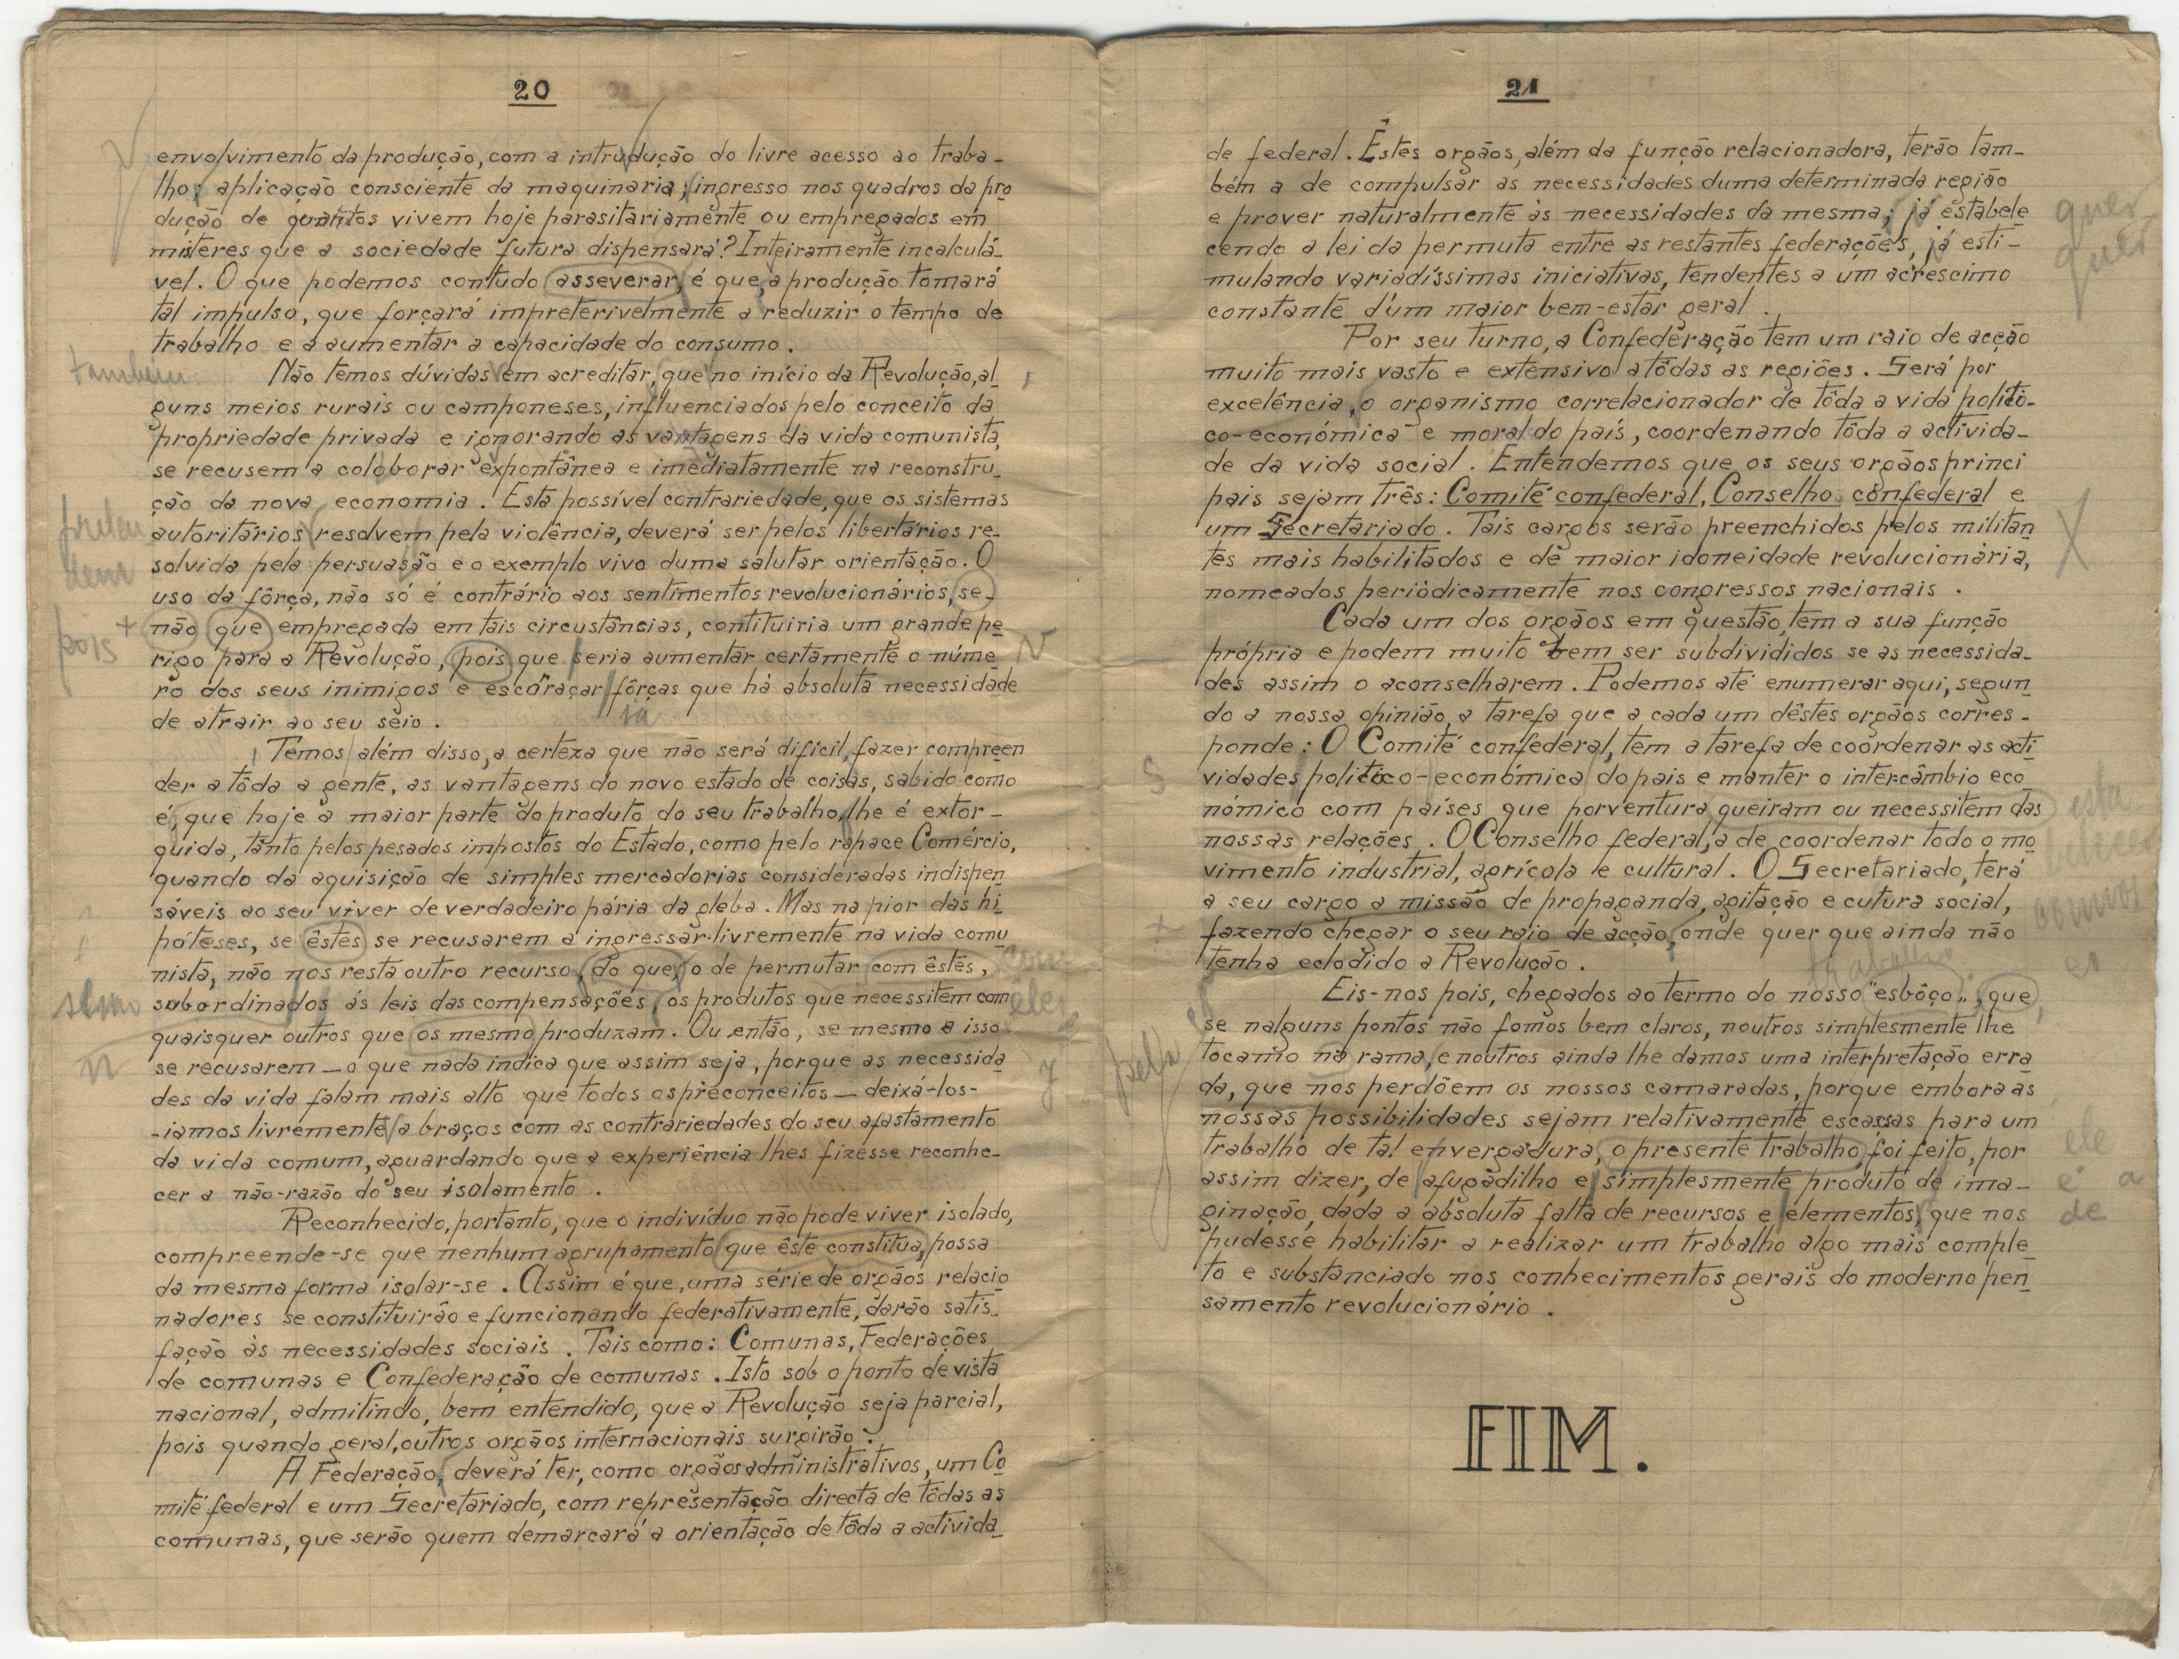 20
envolvimento da produção, com a introdução do livre acesso ao traba-
lho; aplicação consciente da maquinaria; ingresso nos quadros da pro
dução de quantos vivem hoje parasitáriamente ou empregados em
misteres que a sociedade futura dispensará? Inteiramente incalculá-
vel. O que podemos contudo asseverar, é que, a produção tomará
tal impulso, que forçará impreterivelmente a reduzir o tempo de
trabalho e a aumentar a capacidade do consumo.
também
Não temos dúvidas em acreditar, que no início da Revolução, al
guns meios rurais ou camponeses, influenciados pelo conceito da
propriedade privada e ignorando as vantagens da vida comunista,
se recusem a colaborar expontânea e imediatamente na reconstru-
ção da nova economia. Esta possível contrariedade, que os sistemas
autoritários resolvem pela violência, deverá ser pelos libertários re-
solvida pela persuasão e o exemplo vivo duma salutar orientação. O
uso da fôrça, não só é contrário aos sentimentos revolucionários, se-
pois + não que empregada em tais circustâncias, contituiria um grande pe
rigo para a Revolução, pois que seria aumentar certamente o núme
ro dos seus inimigos e escorraçar fôrças que há absoluta necessidade
de atrair ao seu seio.
Temos além disso, a certeza que não será difícil, fazer compreen
der a tôda a gente, as vantagens do novo estado de coisas, sabido como
é, que hoje a maior parte do produto do seu trabalho, lhe é extor-
quida, tanto pelos pesados impostos do Estado, como pelo rapace Comércio,
quando da aquisição de simples mercadorias consideradas indispen
sáveis ao seu viver de verdadeiro pária da gleba. Mas na pior das hi
póteses, se êstes se recusarem a ingressar livremente na vida comu
nista, não nos resta outro recurso, do que, o de permutar com êstes, com
êles
subordinados ás leis das compensações, os produtos que necessitem com
quaisquer outros que os mesmo produzam. Ou então, se mesmo a isso
se recusarem — o que nada indica que assim seja, porque as necessida
des da vida falam mais alto que todos os preconceitos — deixa-los-
-iamos livremente a braços com as contrariedades do seu afastamento
da vida comum, aguardando que a experiência lhes fizesse reconhe-
cer a não-razão do seu isolamento.
Reconhecido, portanto, que o indivíduo não pode viver isolado,
compreende-se que nenhum agrupamento que êste constitua, possa
da mesma forma isolar-se. Assim é que, uma série de orgãos relacio
nadores se constituirão e funcionando federativamente, darão satis-
fação às necessidades sociais. Tais como: Comunas, Federações
de comunas e Confederação de comunas. Isto sob o ponto de vista
nacional, admitindo, bem entendido, que a Revolução seja parcial,
pois quando geral, outros orgãos internacionais surgirão.
A Federação, deverá ter, como orgãos administrativos, um Co
mité federal e um Secretariado, com representação directa de tôdas as
comunas, que serão quem demarcará a orientação de tôda a activida-
21
de federal. Êstes orgãos, além da função relacionadora, terão tam-
bém a de compulsar as necessidades duma determinada região
e prover naturalmente às necessidades da mesma; já estabele quer
cendo a lei da permuta entre as restantes federações, já esti- quer
mulando variadíssimas iniciativas, tendentes a um acréscimo
constante d'um maior bem-estar geral.
Por seu turno, a Confederação tem um raio de acção
muito mais vasto e extensivo a tôdas as regiões. Será por
excelência, o organismo correlacionador de tôda a vida políti-
co-económica e moral do país, coordenando tôda a activida-
de da vida social. Entendemos que os seus orgãos princi
pais sejam três: Comité confederal, Conselho confederal e
um Secretariado. Tais cargos serão preenchidos pelos militan
tes mais habilitados e de maior idoneidade revolucionária,
nomeados periòdicamente nos congressos nacionais.
Cada um dos orgãos em questão, tem a sua função
própria e podem muito bem ser subdivididos se as necessida-
des assim o aconselharem. Podemos até enumerar aqui, segun
do a nossa opinião, a tarefa que a cada um dêstes orgãos corres-
ponde: O Comité confederal, tem a tarefa de coordenar as acti
s vidades politico-económica do pais e manter o intercâmbio eco
nómico com países que porventura queiram ou necessitem das
nossas relações. O Conselho federal, a de coordenar todo o mo
vimento industrial, agrícola e cultural. O Secretariado, terá
a seu cargo a missão de propaganda, agitação e cutura social,
fazendo chegar o seu raio de acção, onde quer que ainda não
tenha eclodido a Revolução.
trabalho
Eis-nos pois, chegados ao termo do nosso "esbôço", que,
se nalguns pontos não fomos bem claros, noutros simplesmente lhe
pela tocamo na rama, e noutros ainda lhe damos uma interpretação erra
da, que nos perdõem os nossos camaradas, porque embora as
nossas possibilidades sejam relativamente escassas para um
trabalho de tal envergadura, o presente trabalho, foi feito, por ele
assim dizer, de afugadilho e simplesmente produto de ima- é a
ginação, dada a absoluta falta de recursos e elementos, que nos de
pudesse habilitar a realizar um trabalho algo mais comple
to e substanciado nos conhecimentos gerais do moderno pen
samento revolucionário.
FIM.